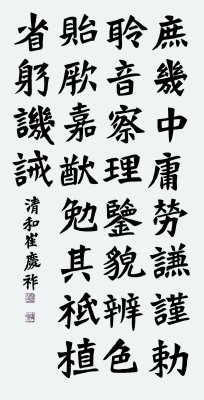 庶幾中庸勞謙謹勅
聆音察理鑒貌辨色
貽厥嘉猷勉其祗植
省躬譏誡
清和崔慶祚